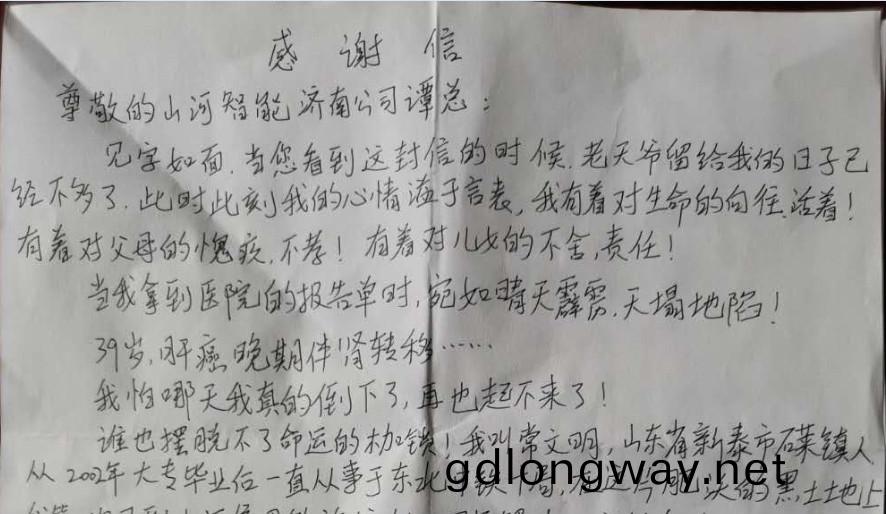 感谢信
尊敬的山河智能济南公司谭总:
见字如面,当您看到这封信的时候,老天爷留给我的日子已
经不多了.此时此刻我的心情溢于言表,我有着对生命的向往,活着!
有着对父母的愧疚,不孝!有着对儿女的不舍,责任!
当我拿到医院的报告单时,宛如晴天霹雳,天塌地陷!
39岁,肝癌晚期伴肾转移……
我怕哪天我真的倒下了,再也起不来了!
谁也摆脱不了命运的枷锁!我叫常文明,山东省新泰市石莱镇人
从2002年大专毕业后一直从事于东北 的黑土地上
gdlongway.net